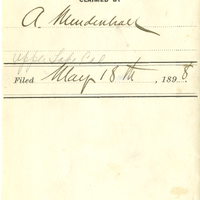 CLAIMED BY
A. Mendenhall
Upper Lake Cal
Filed May 18th, 1898.